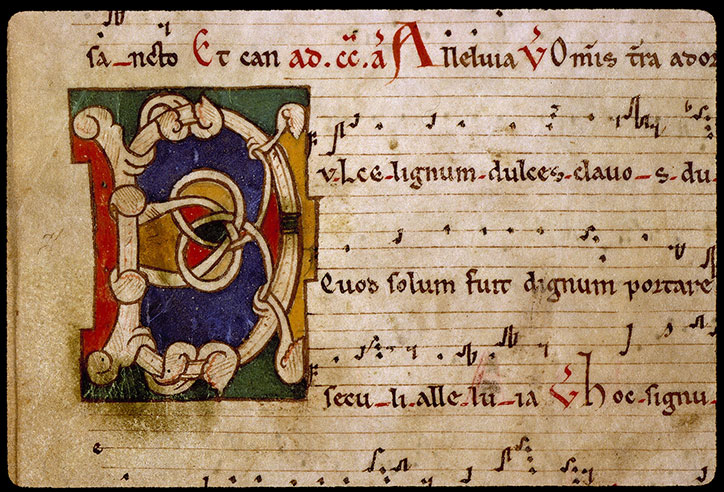 sa_ncto Et can ad. cc. a Alleluia V Om̅s tr̅a ador
DVLce-lignum-dulces-clavo-s-du
Quod solum fuit dignum portare
secu-li-alle-lu-ia V hoc-signu-